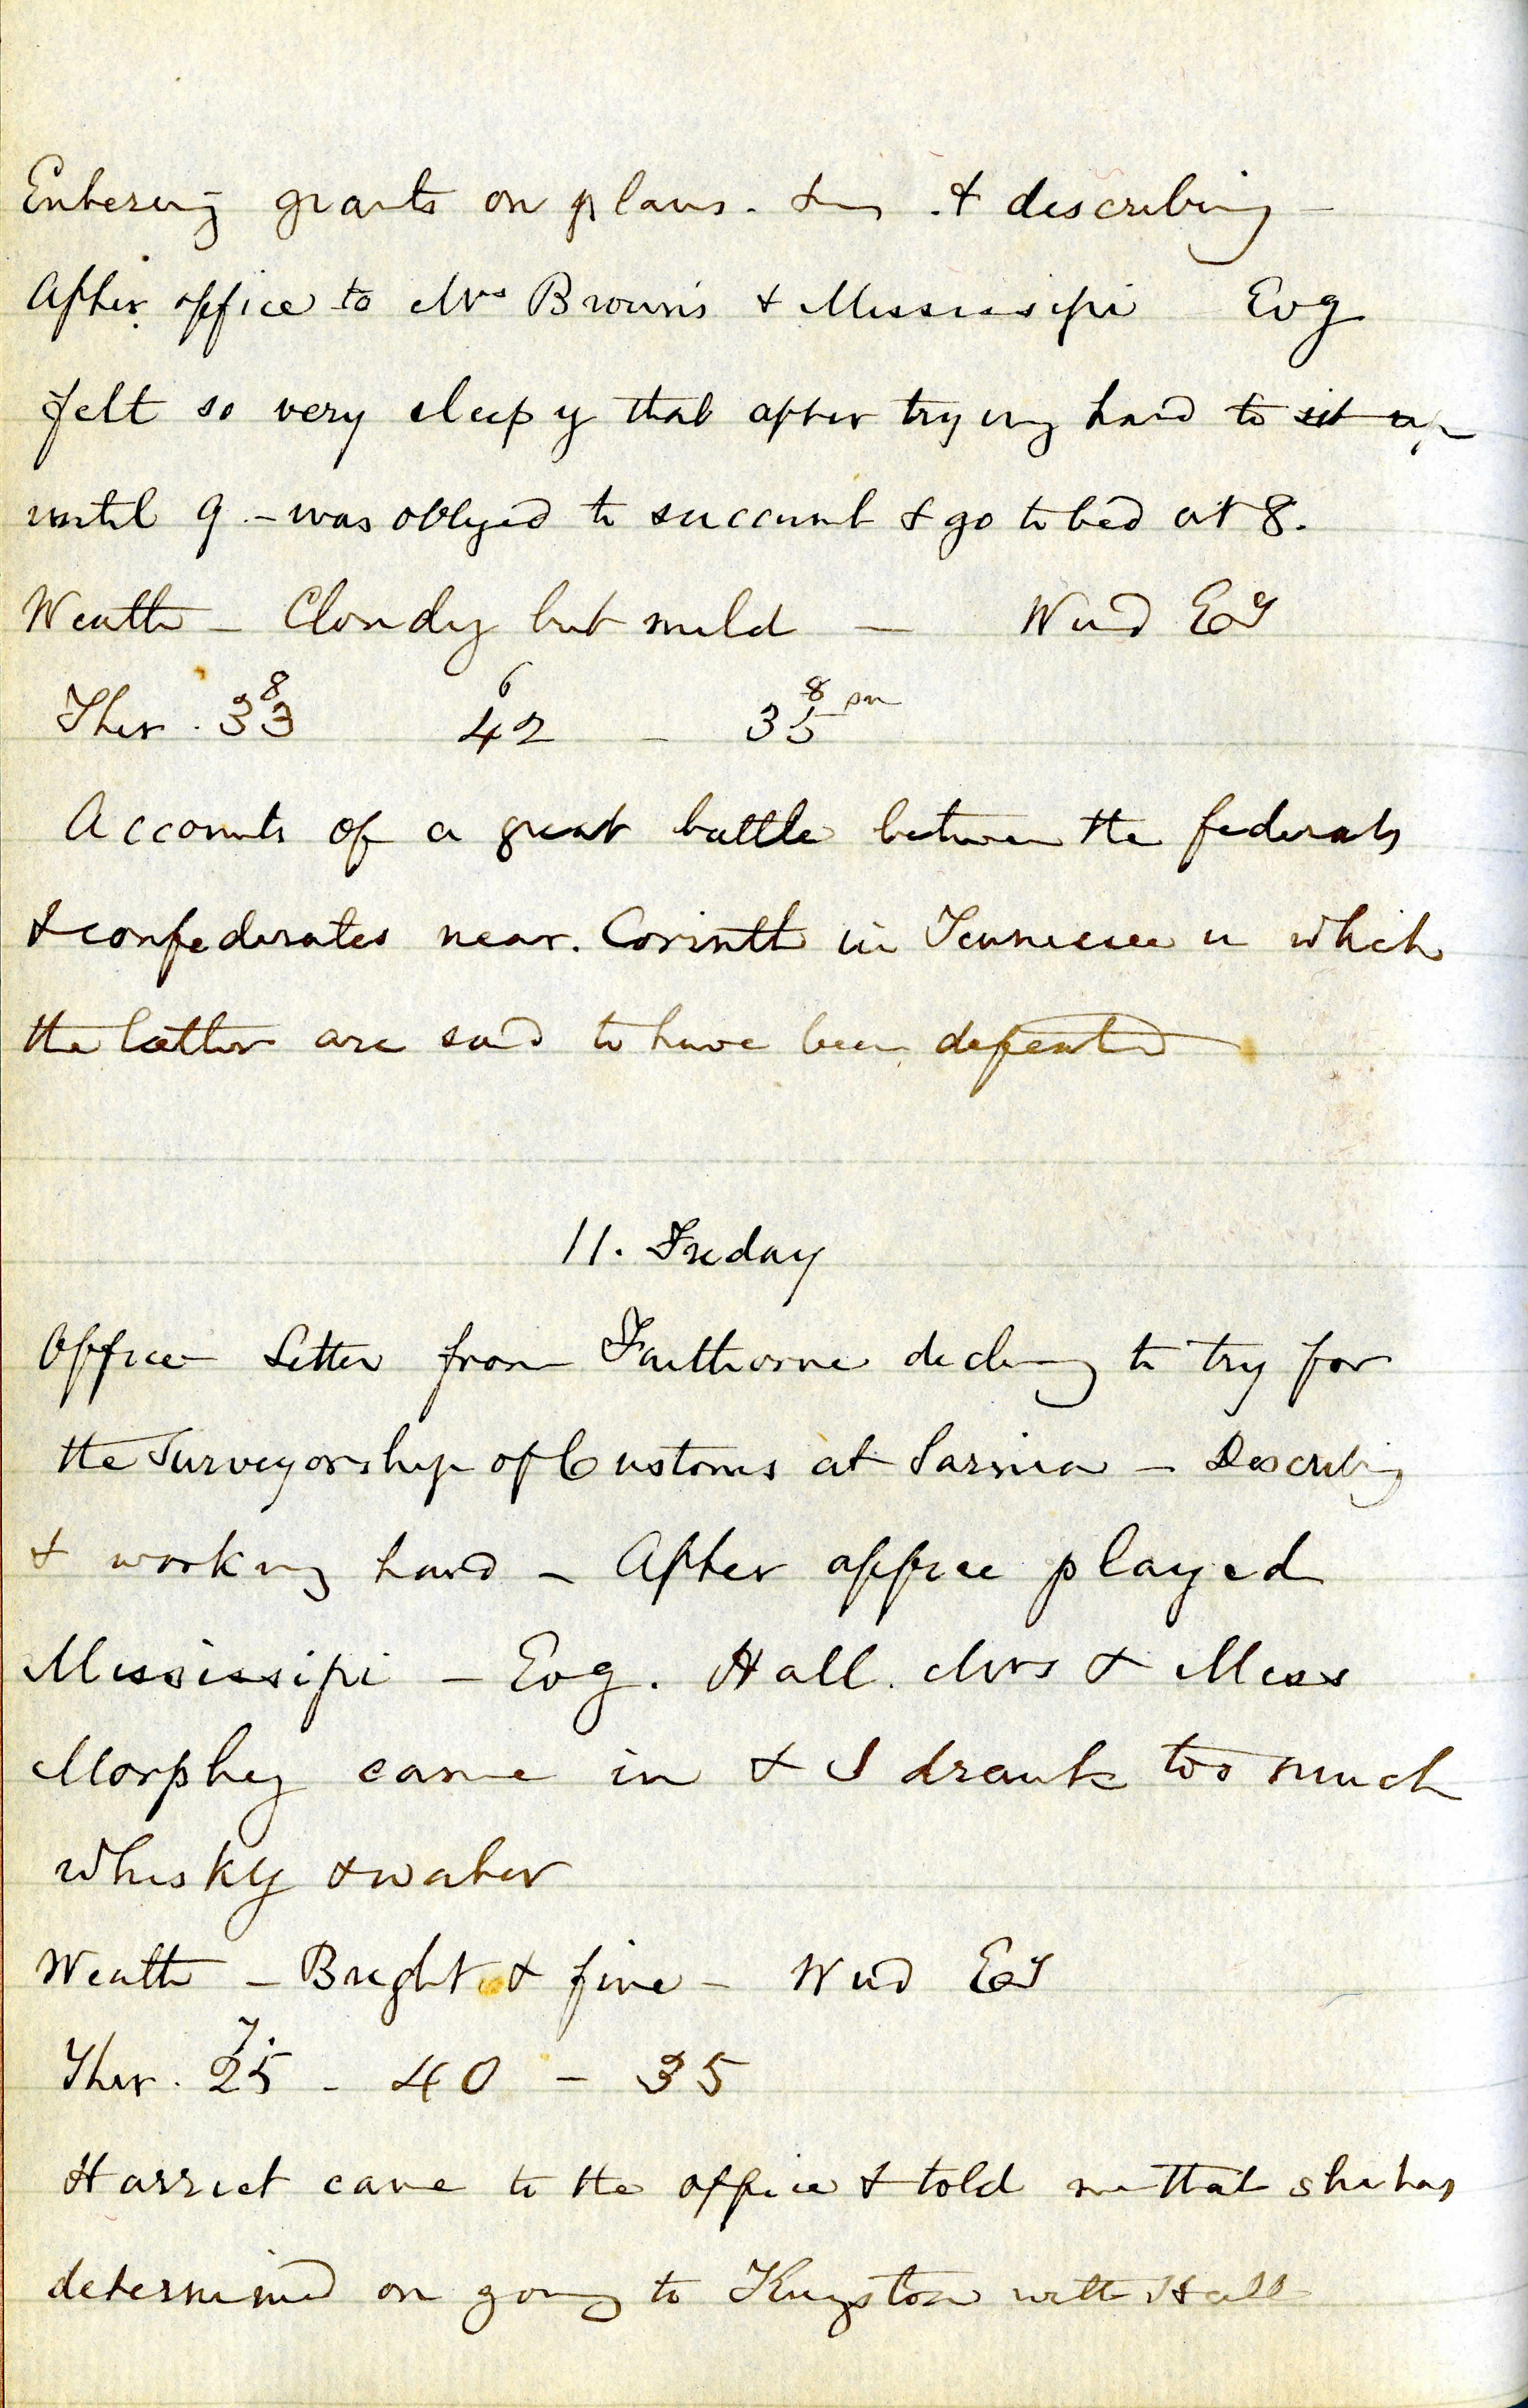 Entering grants on plans. & describing –
After office to Mrs Brown's & Mississipi Evg
felt so very sleepy that after trying hard to sit up
until 9 – was obliged to succumb & go to bed at 8.
Weathr – Cloudy but mild – Wind Ely
8 6 8 pm
Ther. 33 42 – 35
Accounts of a great battle between the federals
& confederates near. Corinth in Tennessee in which
the latter are said to have been defeated
11. Friday
Office Letter from Faithorne declining to try for
the Surveyorship of Customs at Sarnia – Describing
& working hard – After office played
Mississipi – Evg. Hall. Mrs & Miss
Morphy came in & I drank too much
whisky & water
Weathr – Bright & fine – Wind Ely
7.
Ther. 25 – 40 – 35
Harriet came to the office & told me that she has
determined on going to Kingston with Hall